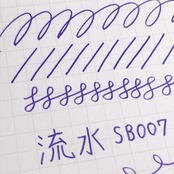 流水 SB007